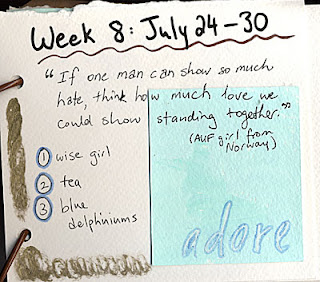 Week 8: July 24-30
"If one man can show so much
hate, think how much love we
could show standing together."
(AUF girl from
Norway)
1 wise girl
2 tea
3 blue
delphiniums
adore